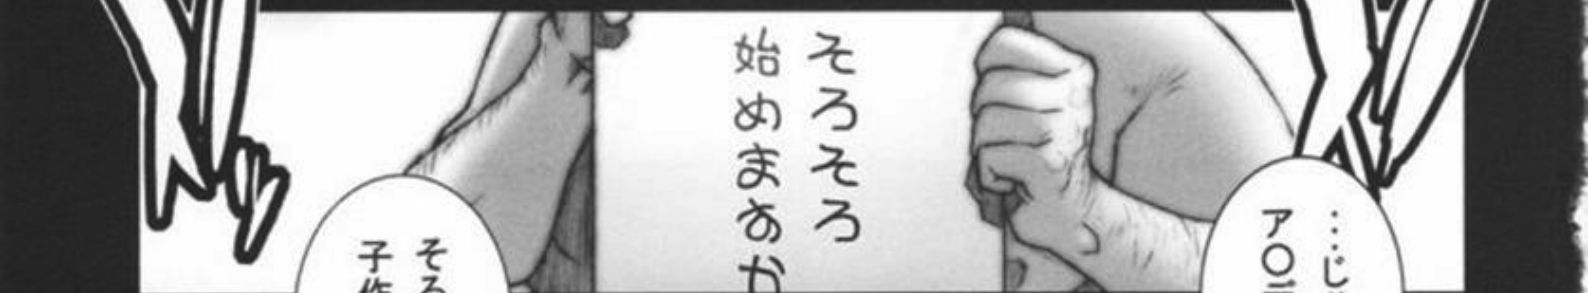 …じ
ア〇
そろそろ
始めますか
そろ
子作